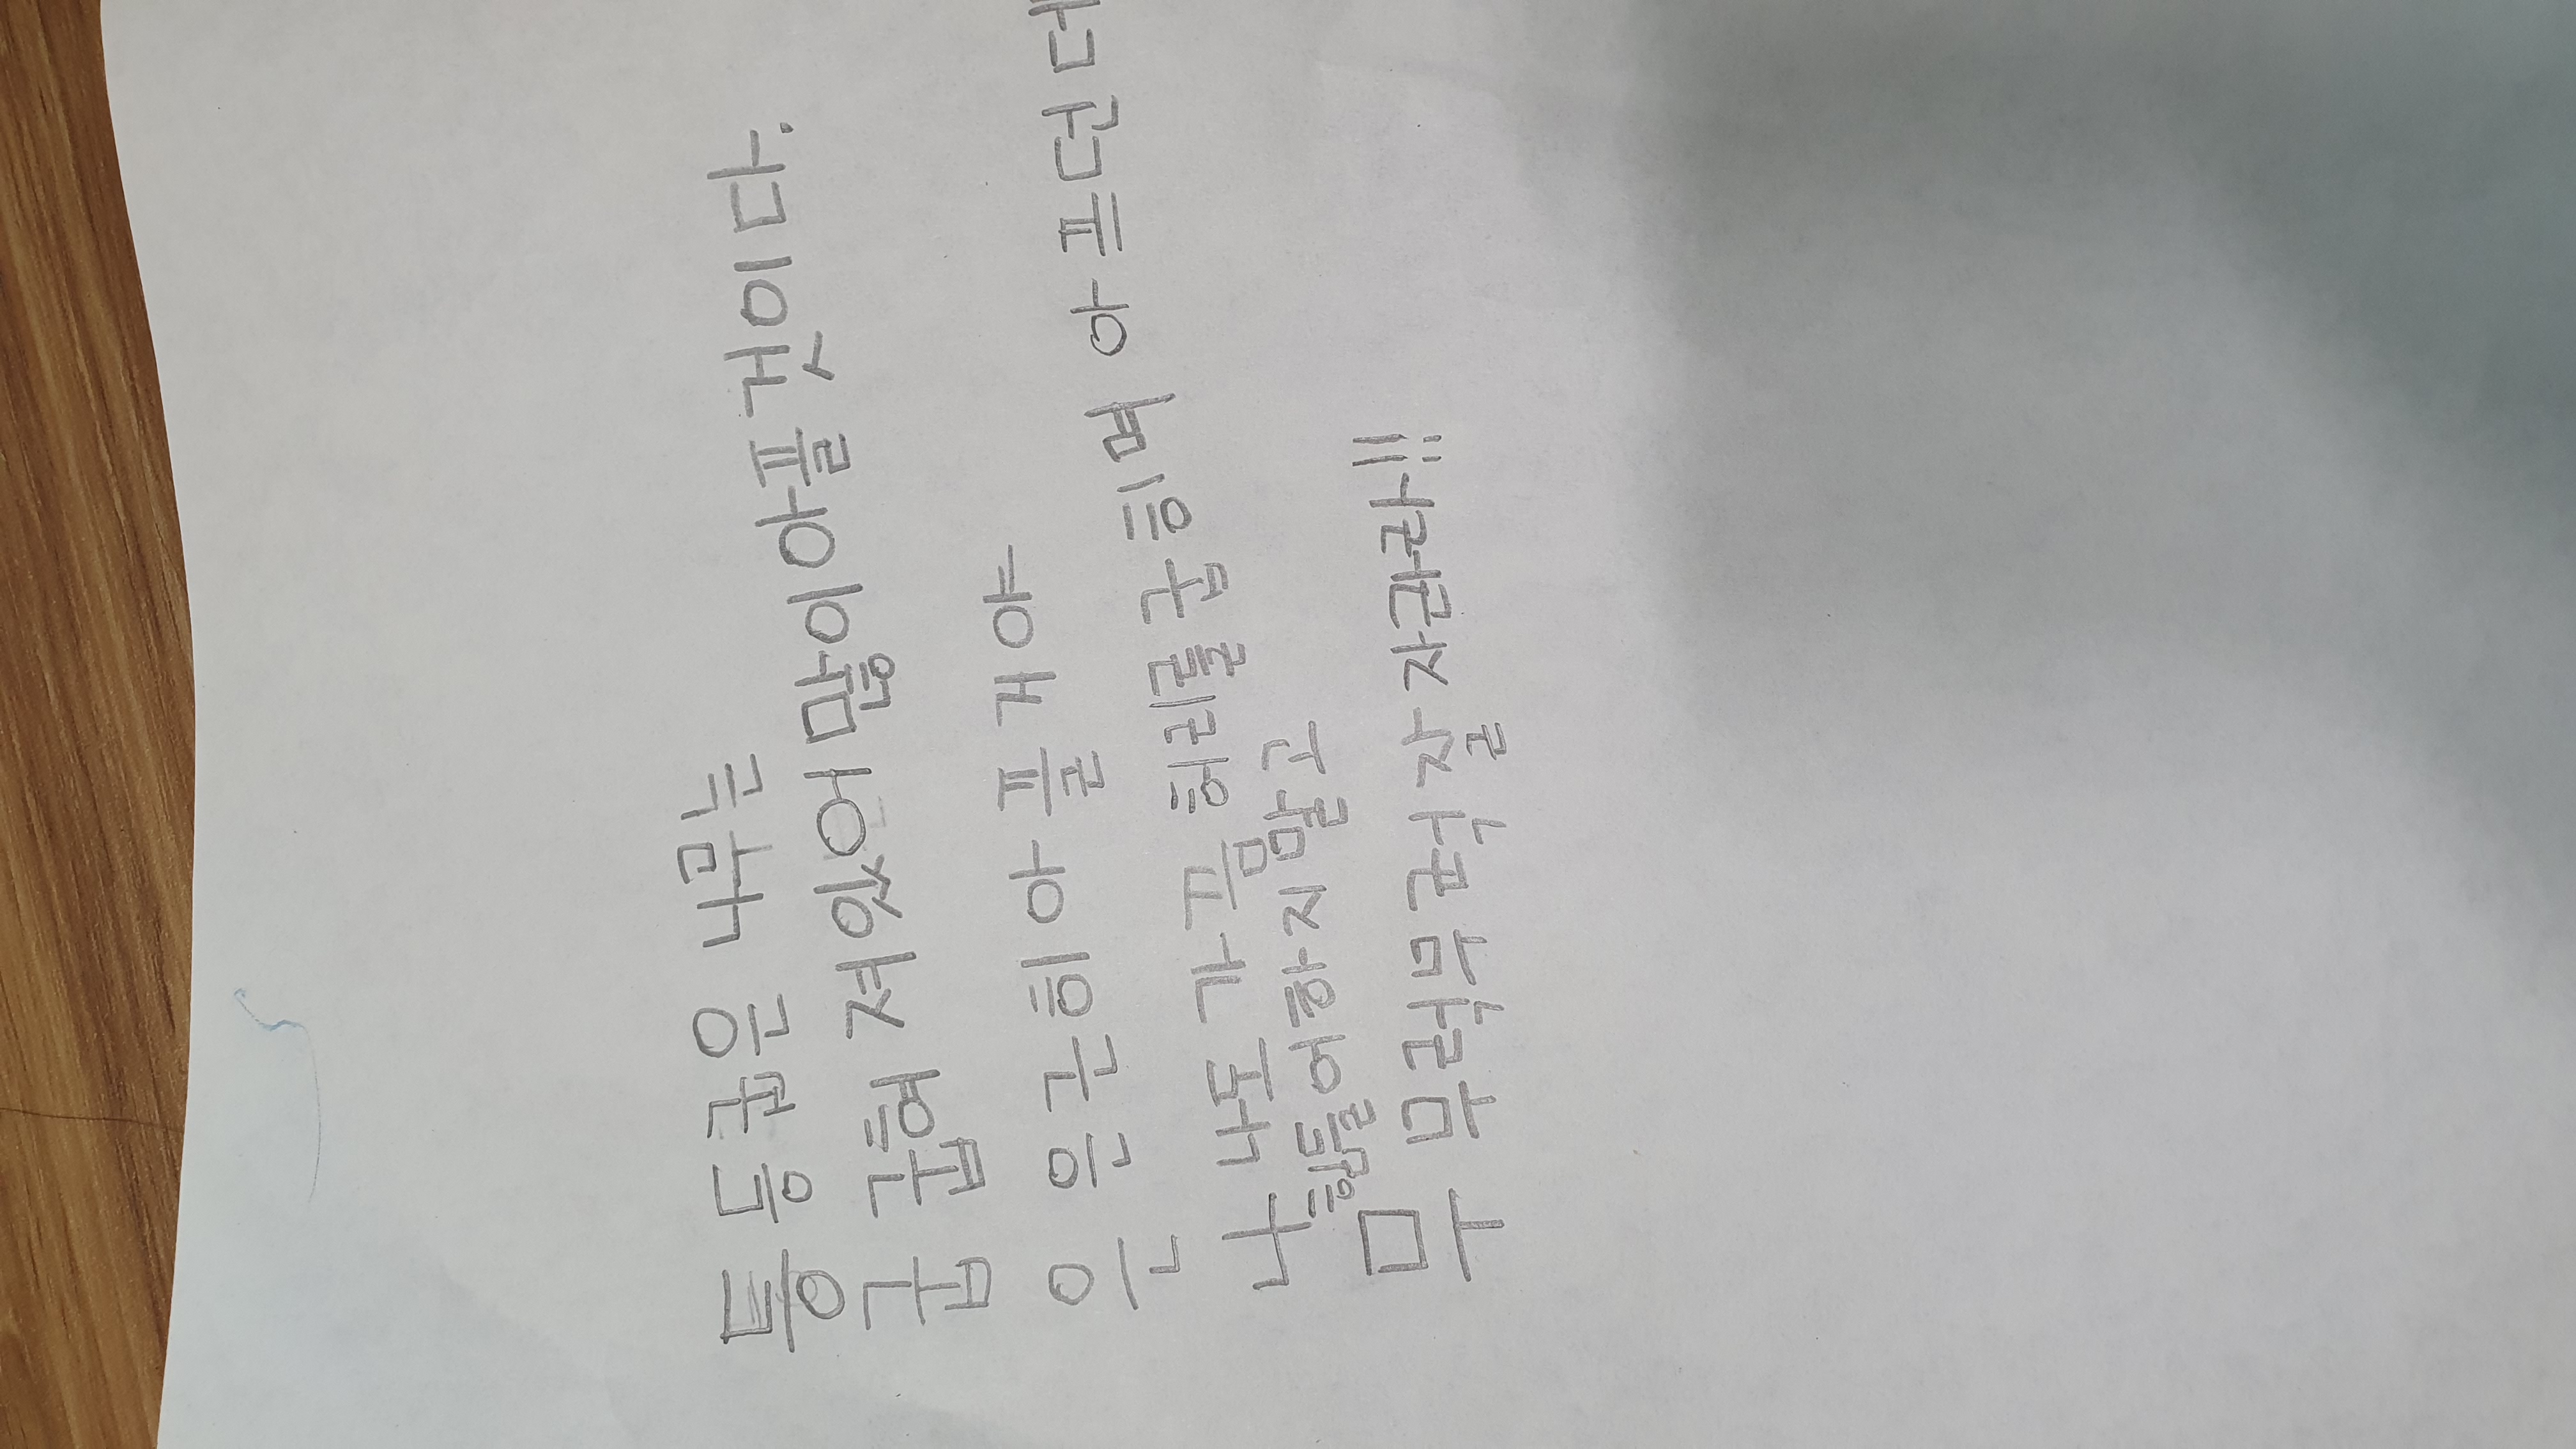 등 등굽은 나무는
굽 굽혀져있어 많이 아플것이다.
은 은근히 아플거야
나 나도 가끔 허리를 굽히며 아프던데
힘들어하지말고
무 무럭무럭 잘 자라라!!